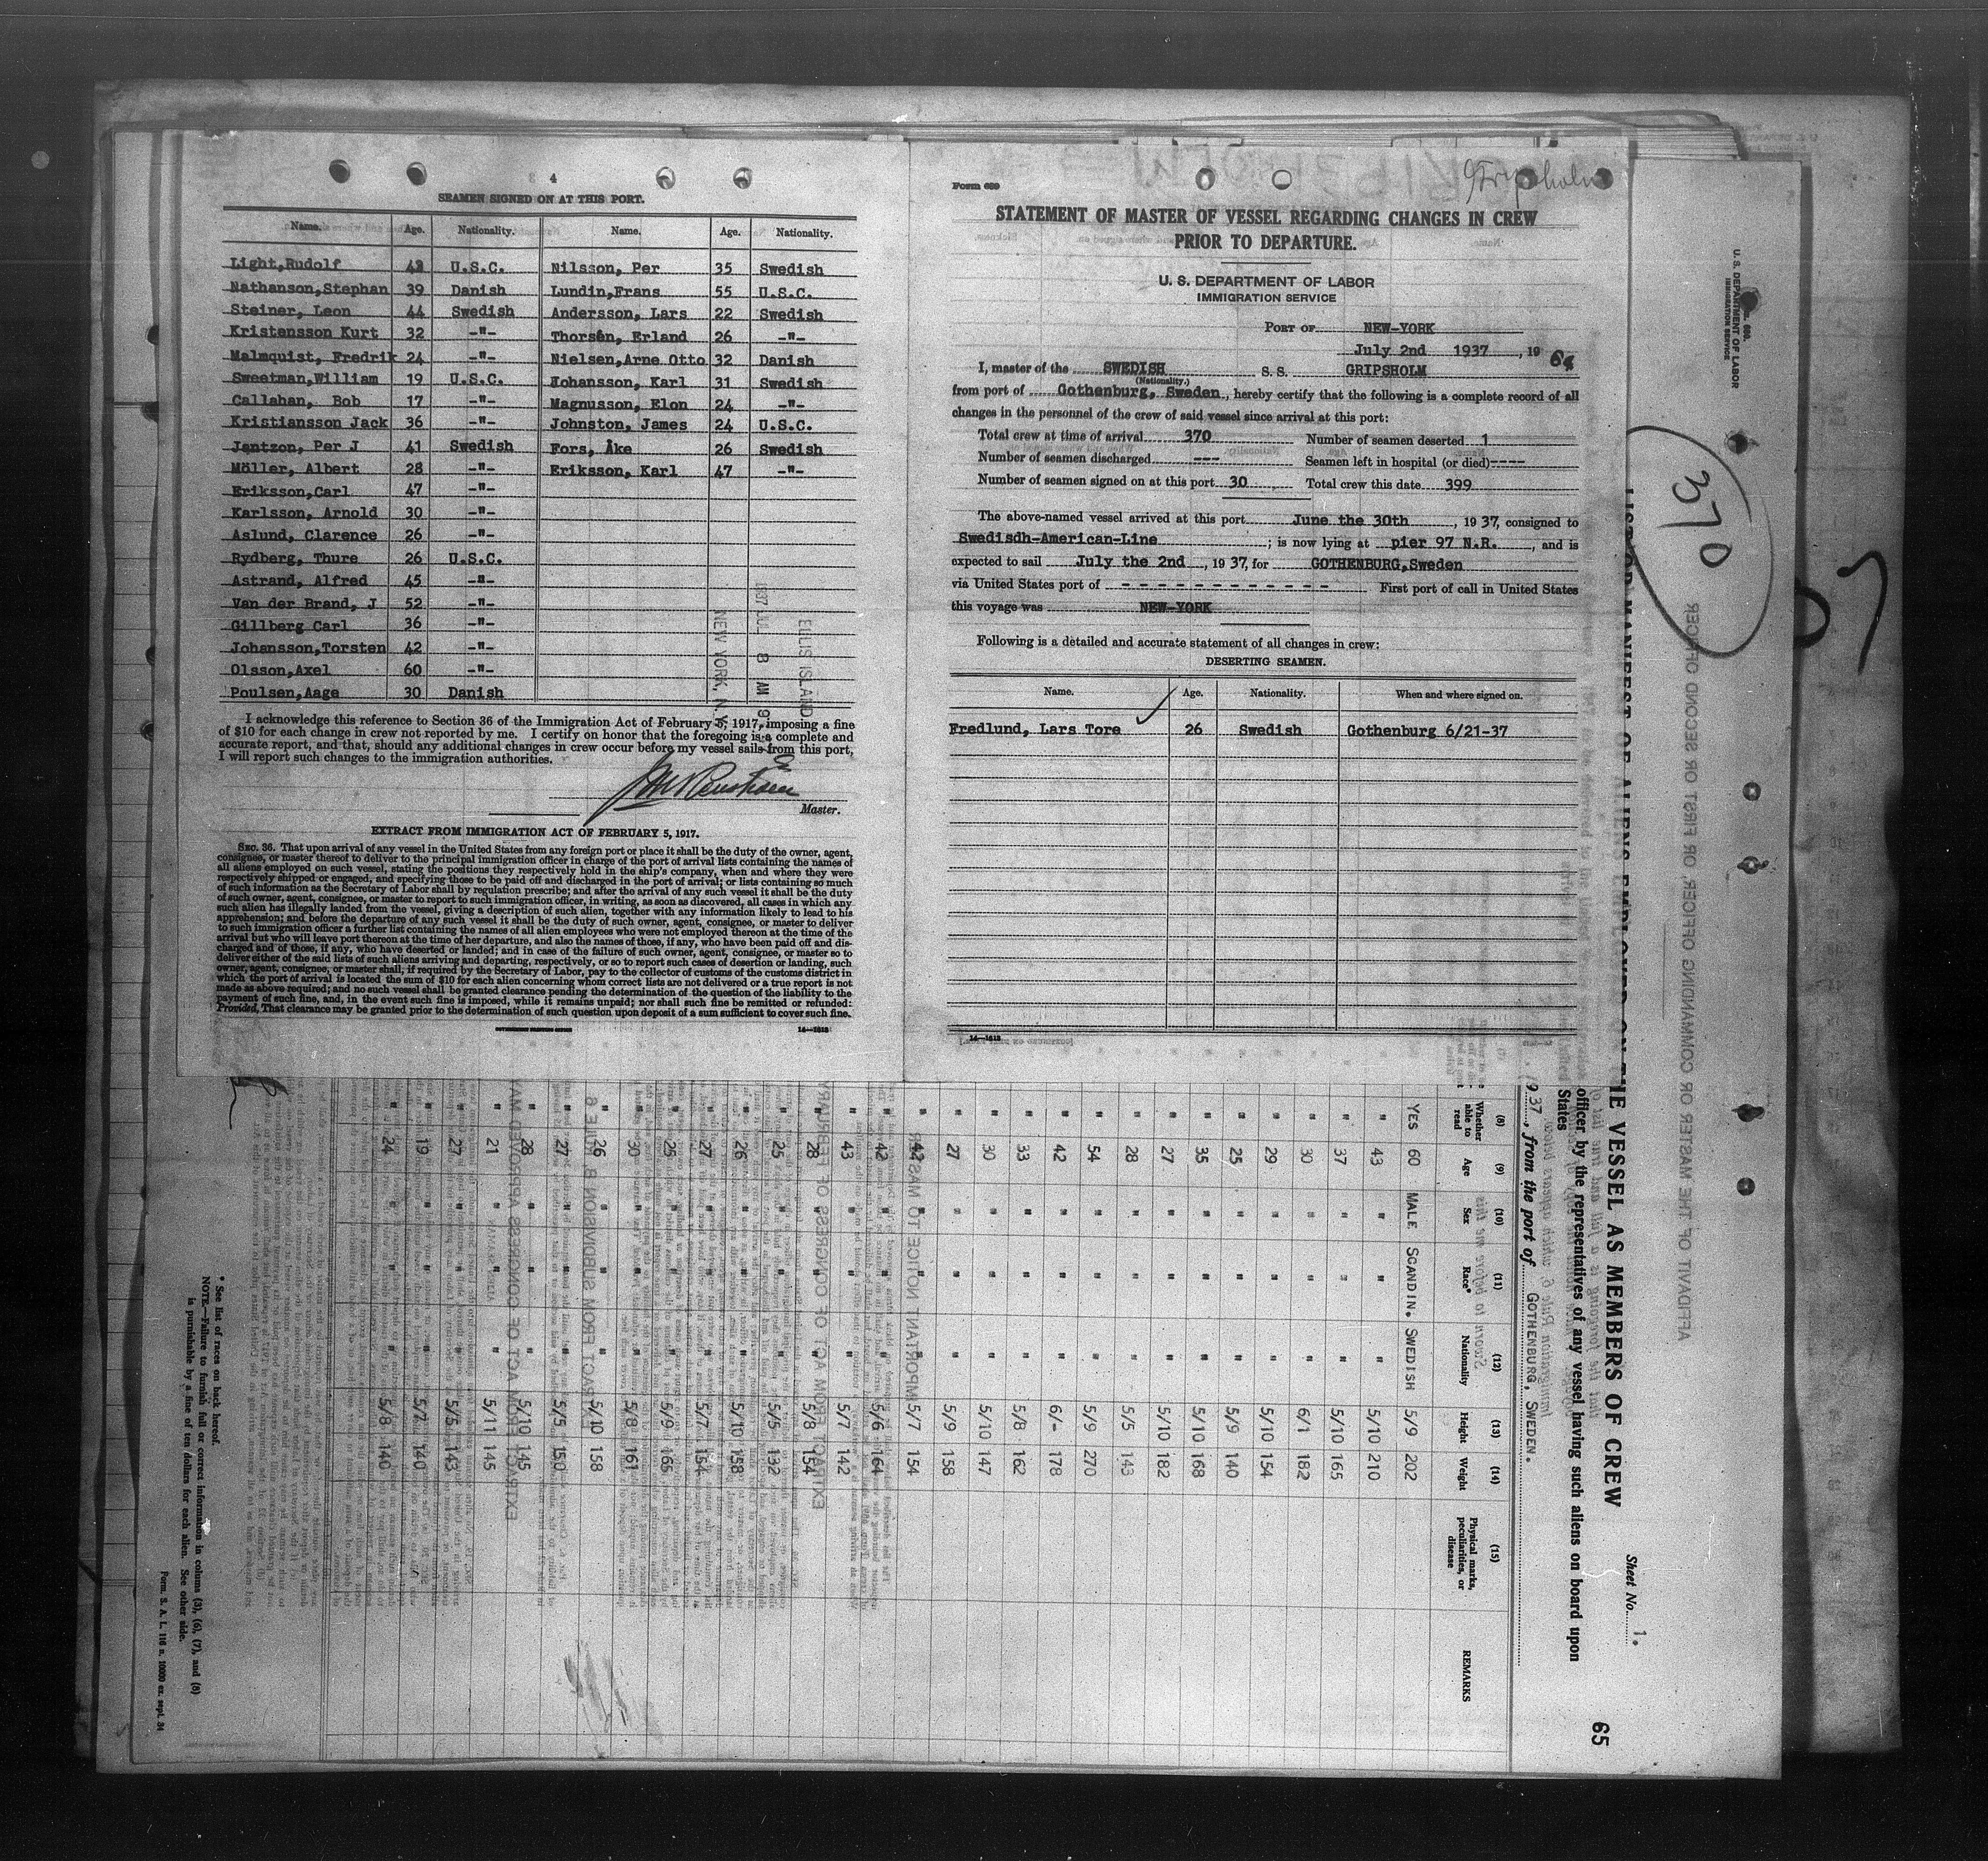 4
SEAMEN SIGNED ON AT THIS PORT.
Name. Age. Nationality. Name. Age. Nationality.
Light,Rudolf 42 U.S.C. Nilsson, Per 35 Swedish
Nathanson,Stephan 39 Danish Lundin,Frans 55 U.S.C.
Steiner, Leon 44 Swedish Andersson, Lars 22 Swedish
Kristensson Kurt 32 -"- Thorsén, Erland 26 -"-
Malmquist, Fredrik 24 -"- Nielsen,Arne Otto 32 Danish
Sweetman,William 19 U.S.C. Johansson, Karl 31 Swedish
Callahan, Bob 17 -"- Magnusson, Elon 24 -"-
Kristiansson Jack 36 -"- Johnston, James 24 U.S.C.
Jantzon, Per J 41 Swedish Fors, Åke 26 Swedish
Möller, Albert 28 -"- Eriksson, Karl 47 -"-
Eriksson,Carl 47 -"-
Karlsson, Arnold 30 -"-
Aslund, Clarence 26 -"-
Rydberg, Thure 26 U.S.C.
Astrand, Alfred 45 -"-
Van der Brand, J 52 -"-
Gillberg Carl 36 -"-
Johansson,Torsten 42 -"-
Olsson,Axel 60 -"-
Poulsen,Aage 30 Danish
ELLIS ISLAND
1937 JUL 8 AM 9
NEW YORK, N.Y.
I acknowledge this reference to Section 36 of the Immigration Act of February 5, 1917, imposing a fine
of $10 for each change in crew not reported by me. I certify on honor that the foregoing is a complete and
accurate report, and that, should any additional changes in crew occur before my vessel sails from this port,
I will report such changes to the immigration authorities.
Master.
EXTRACT FROM IMMIGRATION ACT OF FEBRUARY 5, 1917.
SEC. 36. That upon arrival of any vessel in the United States from any foreign port or place it shall be the duty of the owner, agent,
consignee, or master thereof to deliver to the principal immigration officer in charge of the port of arrival lists containing the names of
all aliens employed on such vessel, stating the positions they respectively hold in the ship's company, when and where they were
respectively shipped or engaged, and specifying those to be paid off and discharged in the port of arrival; or lists containing so much
of such information as the Secretary of Labor shall by regulation prescribe; and after the arrival of any such vessel it shall be the duty
of such owner, agent, consignee, or master to report to such immigration officer, in writing, as soon as discovered, all cases in which any
such alien has illegally landed from the vessel, giving a description of such alien, together with any information likely to lead to his
apprehension; and before the departure of any such vessel it shall be the duty of such owner, agent, consignee, or master to deliver
to such immigration officer a further list containing the names of all alien employees who were not employed thereon at the time of the
arrival but who will leave port thereon at the time of her departure, and also the names of those, if any, who have been paid off and dis-
charged and of those, if any, who have deserted or landed; and in case of the failure of such owner, agent, consignee, or master so to
deliver either of the said lists of such aliens arriving and departing, respectively, or so to report such cases of desertion or landing, such
owner, agent, consignee, or master shall, if required by the Secretary of Labor, pay to the collector of customs of the customs district in
which the port of arrival is located the sum of $10 for each alien concerning whom correct lists are not delivered or a true report is not
made as above required; and no such vessel shall be granted clearance pending the determination of the question of the liability to the
payment of such fine, and, in the event such fine is imposed, while it remains unpaid; nor shall such fine be remitted or refunded:
Provided, That clearance may be granted prior to the determination of such question upon deposit of a sum sufficient to cover such fine.
14—1813
Form 689
Gripsholm
STATEMENT OF MASTER OF VESSEL REGARDING CHANGES IN CREW
PRIOR TO DEPARTURE.
U. S. DEPARTMENT OF LABOR
IMMIGRATION SERVICE
PORT OF NEW-YORK
July 2nd 1937 , 19
64
I, master of the SWEDISH S. S. GRIPSHOLM
(Nationality.)
from port of Gothenburg, Sweden, hereby certify that the following is a complete record of all
changes in the personnel of the crew of said vessel since arrival at this port:
Total crew at time of arrival 370 Number of seamen deserted 1
Number of seamen discharged --- Seamen left in hospital (or died)----
Number of seamen signed on at this port 30 Total crew this date 399
The above-named vessel arrived at this port June the 30th , 1937, consigned to
Swedisdh-American-Line ; is now lying at pier 97 N.R. , and is
expected to sail July the 2nd , 1937, for GOTHENBURG,Sweden
via United States port of - - - - - - - - - - - - First port of call in United States
this voyage was NEW-YORK
Following is a detailed and accurate statement of all changes in crew:
DESERTING SEAMEN.
Name. Age. Nationality. When and where signed on.
Fredlund, Lars Tore 26 Swedish Gothenburg 6/21-37
14—1813
370
U. S. DEPARTMENT OF LABOR
IMMIGRATION SERVICE
AFFIDAVIT OF THE MASTER OR COMMANDING OFFICER, OR FIRST OR SECOND OFFICER
Sheet No. 1.
LIST OR MANIFEST OF ALIENS EMPLOYED ON THE VESSEL AS MEMBERS OF CREW
65
officer by the representatives of any vessel having such aliens on board upon
States
937, from the port of GOTHENBURG, SWEDEN.
(8) (9) (10) (11) (12) (13) (14) (15)
Whether able to read Age Sex Race* Nationality Height Weight Physical marks, peculiarities, or disease REMARKS
YES 60 MALE SCANDIN. SWEDISH 5/9 202
" 43 " " " 5/10 210
" 37 " " " 5/10 165
" 30 " " " 6/1 182
" 29 " " " 5/10 154
" 25 " " " 5/9 140
" 35 " " " 5/10 168
" 27 " " " 5/10 182
" 28 " " " 5/5 143
" 54 " " " 5/9 270
" 42 " " " 6/- 178
" 33 " " " 5/8 162
" 30 " " " 5/10 147
" 27 " " " 5/9 158
" 42 " " " 5/7 154
" 42 " " " 5/6 164
" 43 " " " 5/7 142
" 28 " " " 5/8 154
" 25 " " " 5/5 132
" 26 " " " 5/10 158
" 27 " " " 5/7 154
" 25 " " " 5/9 165
" 30 " " " 5/8 161
" 26 " " " 5/10 158
" 27 " " " 5/5 150
" 28 " " " 5/10 145
" 21 " " " 5/11 145
" 27 " " " 5/5 143
" 19 " " " 5/7 140
" 24 " " " 5/8 140
* See list of races on back hereof.
NOTE.—Failure to furnish full or correct information in colums (3), (6), (7), and (8)
is punishable by a fine of ten dollars for each alien. See other side.
Form. S. A. L. 116 n. 10000 ex. sept. 34